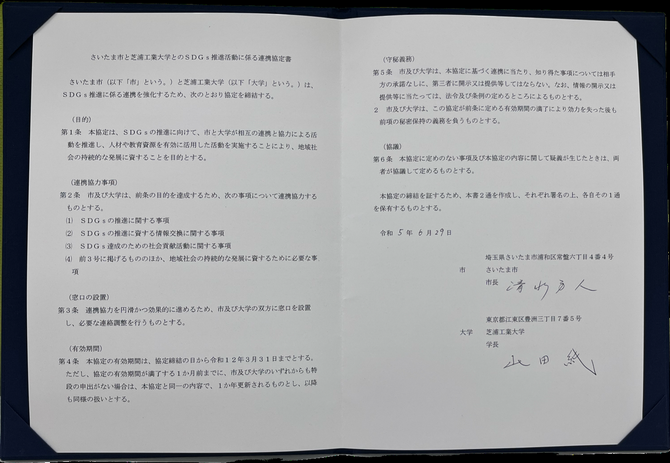 さいたま市と芝浦工業大学とのSDGs推進活動に係る連携協定書
さいたま市（以下「市」という。）と芝浦工業大学（以下「大学」という。）は、
SDGs推進に係る連携を強化するため、次のとおり協定を締結する。
（目的）
第1条　本協定は、SDGsの推進に向けて、市と大学が相互の連携と協力による活
動を推進し、人材や教育資源を有効に活用した活動を実施することにより、地域社
会の持続的な発展に資することを目的とする。
（連携協力事項）
第2条　市及び大学は、前条の目的を達成するため、次の事項について連携協力する
ものとする。
⑴　SDGsの推進に関する事項
⑵　SDGsの推進に資する情報交換に関する事項
⑶　SDGs達成のための社会貢献活動に関する事項
⑷　前3号に掲げるもののほか、地域社会の持続的な発展に資するために必要な事
項
（窓口の設置）
第3条　連携協力を円滑かつ効果的に進めるため、市及び大学の双方に窓口を設置
し、必要な連絡調整を行うものとする。
（有効期間）
第4条　本協定の有効期間は、協定締結の日から令和12年3月31日までとする。
ただし、協定の有効期間が満了する1か月前までに、市及び大学のいずれからも特
段の申出がない場合は、本協定と同一の内容で、1か年更新されるものとし、以降
も同様の扱いとする。
（守秘義務）
第5条　市及び大学は、本協定に基づく連携に当たり、知り得た事項については相手
方の承諾なしに、第三者に開示又は提供等してはならない。なお、情報の開示又は
提供等に当たっては、法令及び条例の定めるところによるものとする。
2　市及び大学は、この協定が前条に定める有効期間の満了により効力を失った後も
前項の秘密保持の義務を負うものとする。
（協議）
第6条　本協定に定めのない事項及び本協定の内容に関して疑義が生じたときは、両
者が協議して定めるものとする。
本協定の締結を証するため、本書2通を作成し、それぞれ署名の上、各自その1通
を保有するものとする。
令和 5 年 6 月 29 日
埼玉県さいたま市浦和区常盤六丁目4番4号
市　さいたま市
市長　清水勇人
東京都江東区豊洲三丁目7番5号
大学　芝浦工業大学
学長
山田純